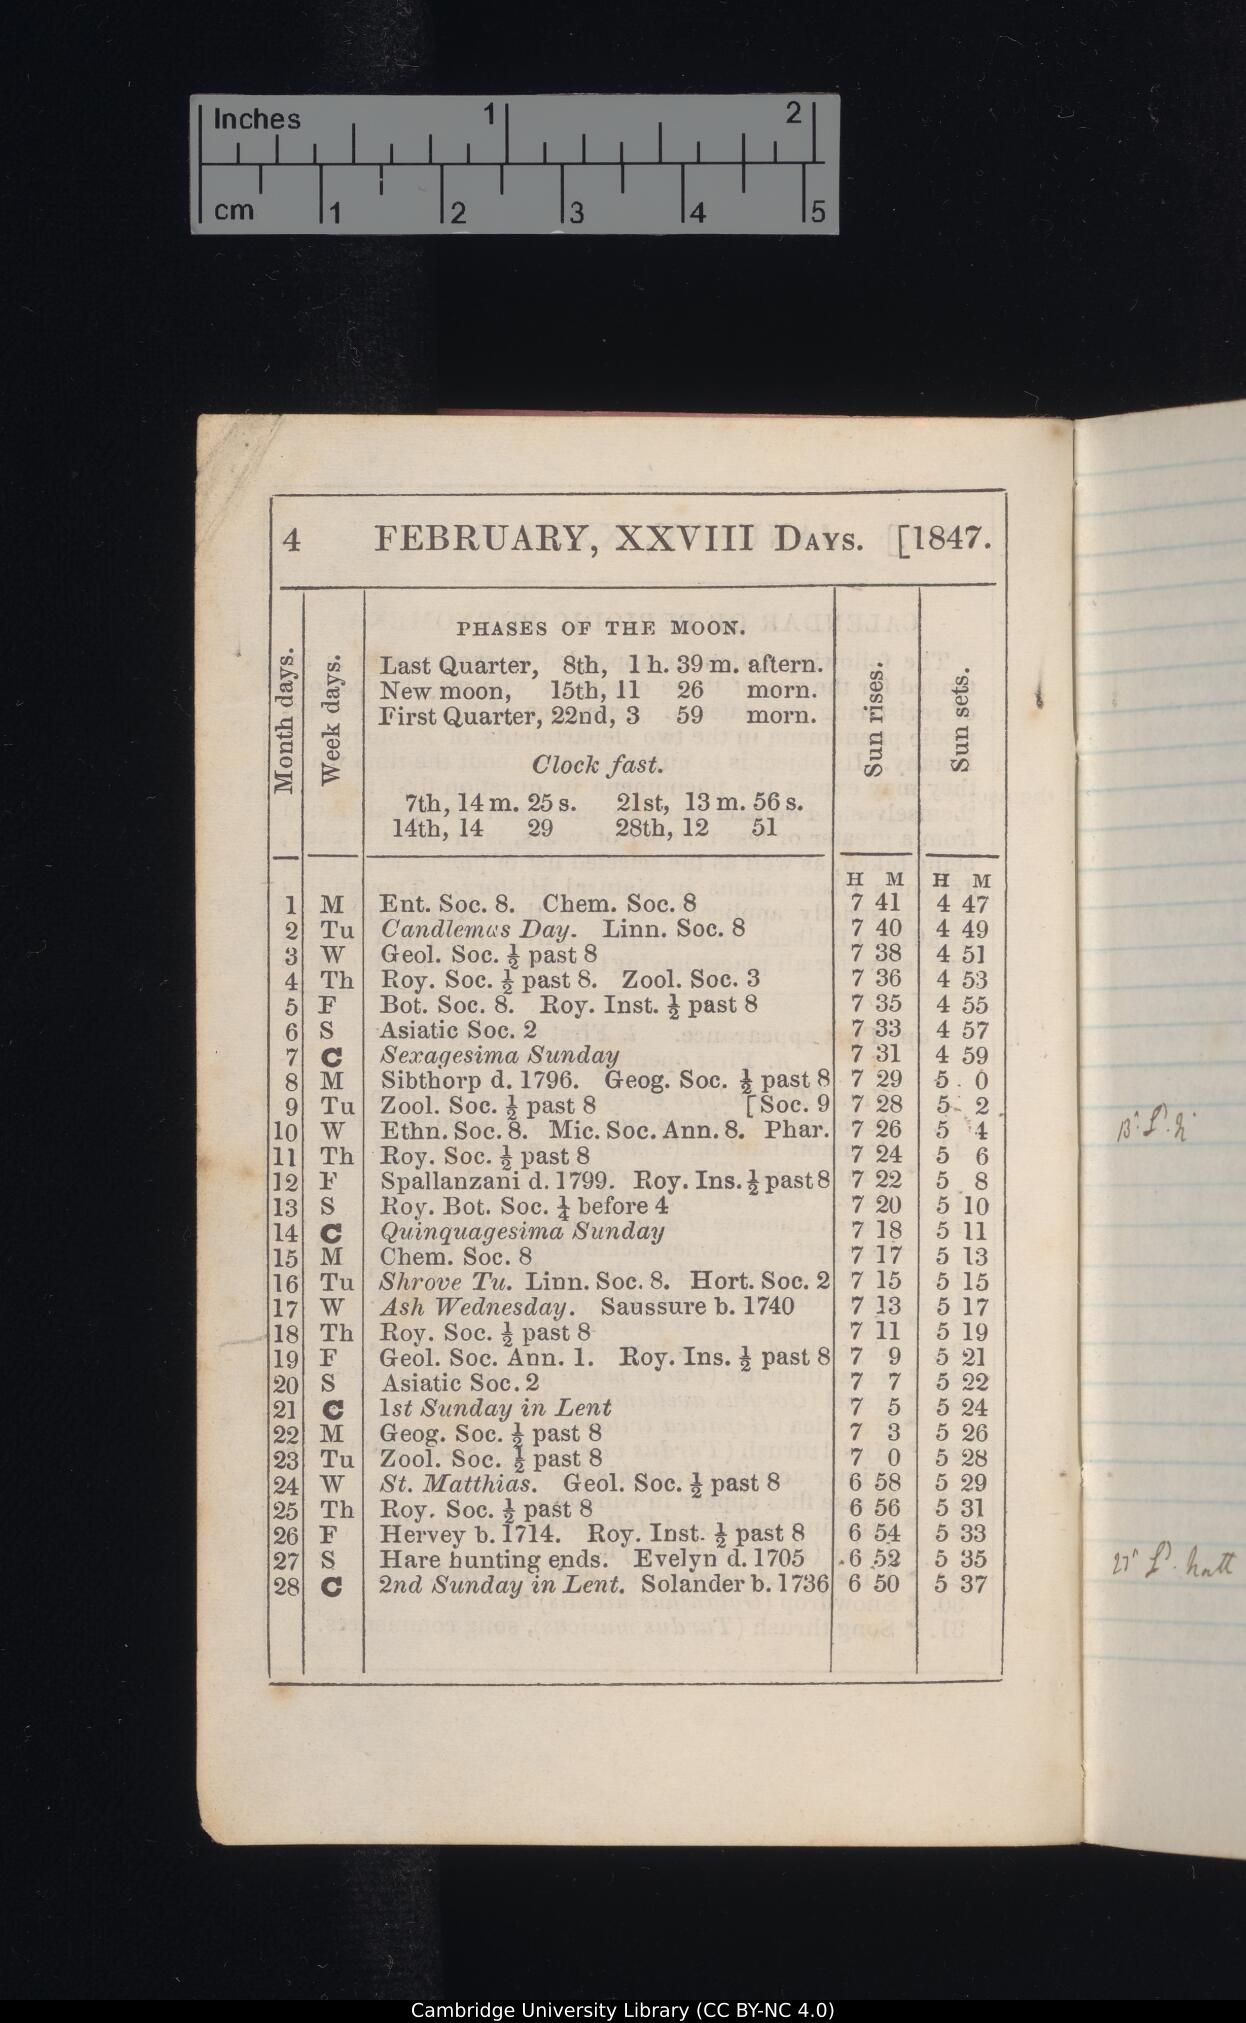 Inches 1 2
cm 1 2 3 4 5
4 FEBRUARY, XXVIII DAYS. [1847.
Month days.
Week days.
PHASES OF THE MOON.
Last Quarter, 8th, 1 h. 39 m. aftern.
New moon, 15th, 11 26 morn.
First Quarter, 22nd, 3 59 morn.
Clock fast.
7th, 14 m. 25 s. 21st, 13 m. 56 s.
14th, 14 29 28th, 12 51
Sun rises.
Sun sets.
H M H M
1 M Ent. Soc. 8. Chem. Soc. 8 7 41 4 47
2 Tu Candlemas Day. Linn. Soc. 8 7 40 4 49
3 W Geol. Soc. ½ past 8 7 38 4 51
4 Th Roy. Soc. ½ past 8. Zool. Soc. 3 7 36 4 53
5 F Bot. Soc. 8. Roy. Inst. ½ past 8 7 35 4 55
6 S Asiatic Soc. 2 7 33 4 57
7 C Sexagesima Sunday 7 31 4 59
8 M Sibthorp d. 1796. Geog. Soc. ½ past 8 7 29 5 0
9 Tu Zool. Soc. ½ past 8 [Soc. 9 7 28 5 2
10 W Ethn. Soc. 8. Mic. Soc. Ann. 8. Phar. 7 26 5 4
11 Th Roy. Soc. ½ past 8 7 24 5 6
12 F Spallanzani d. 1799. Roy. Ins. ½ past 8 7 22 5 8
13 S Roy. Bot. Soc. ¼ before 4 7 20 5 10
14 C Quinquagesima Sunday 7 18 5 11
15 M Chem. Soc. 8 7 17 5 13
16 Tu Shrove Tu. Linn. Soc. 8. Hort. Soc. 2 7 15 5 15
17 W Ash Wednesday. Saussure b. 1740 7 13 5 17
18 Th Roy. Soc. ½ past 8 7 11 5 19
19 F Geol. Soc. Ann. 1. Roy. Ins. ½ past 8 7 9 5 21
20 S Asiatic Soc. 2 7 7 5 22
21 C 1st Sunday in Lent 7 5 5 24
22 M Geog. Soc. ½ past 8 7 3 5 26
23 Tu Zool. Soc. ½ past 8 7 0 5 28
24 W St. Matthias. Geol. Soc. ½ past 8 6 58 5 29
25 Th Roy. Soc. ½ past 8 6 56 5 31
26 F Hervey b. 1714. Roy. Inst. ½ past 8 6 54 5 33
27 S Hare hunting ends. Evelyn d. 1705 6 52 5 35
28 C 2nd Sunday in Lent. Solander b. 1736 6 50 5 37
Cambridge University Library (CC BY-NC 4.0)